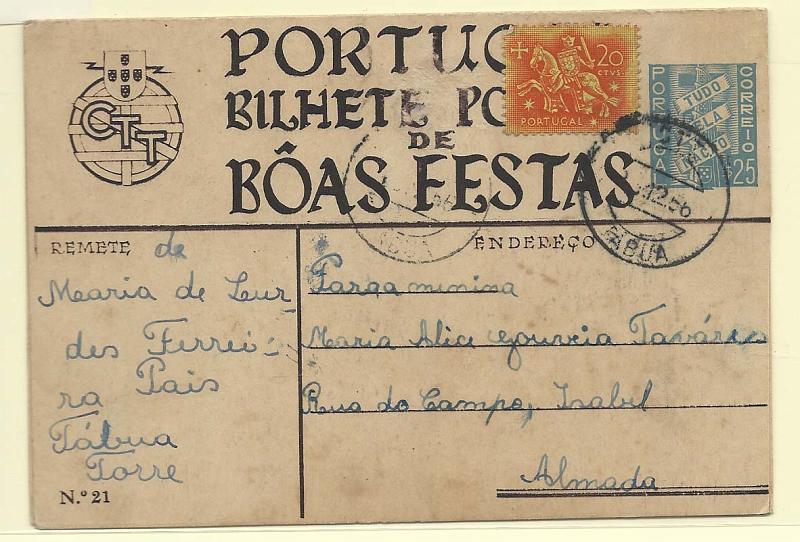 CTT
PORTUG
BILHETE PO
DE
BÔAS FESTAS
20
CTVS.
PORTUGAL
PORTUGAL
CORREIO
TUDO
PELA
NAÇÃO
$25
12.56
TÁBUA
TABUA
REMETE de
Maria de Lur-
des Ferrei-
ra Pais
Tábua
Torre
N.º 21
ENDEREÇO
Para a menina
Maria Alice Gouveia Tavares
Rua do Campo, Isabel
Almada